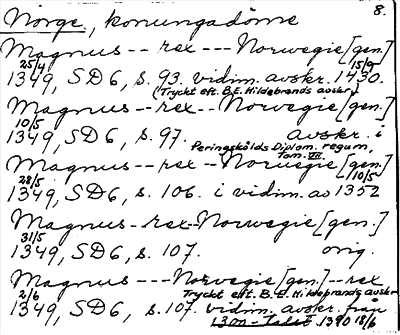 8.
Norge, konungadöme
Magnus -- rex --- Norwegie [gen.]
25/4 15/9
1349, SD6, s. 93. vidim. avskr. 1430.
(Tryckt eft. B.E. Hildebrands avskr.)
Magnus -- rex -- Norwegie [gen.]
10/5
1349, SD6, s. 97. avskr. i
Peringskölds Diplom. regum,
Tom. VII.
Magnus -- rex -- Norwegie [gen.]
28/5 10/5
1349, SD6, s. 106. i vidim. av 1352
Magnus - rex - Norwegie [gen.]
31/5
1349, SD6, s. 107. orig.
Magnus --- Norvegie [gen.] -- rex
2/6 Tryckt eft. B.E. Hildebrands avskr
1349, SD6, s. 107. vidim. avskr. från
1390 18/6